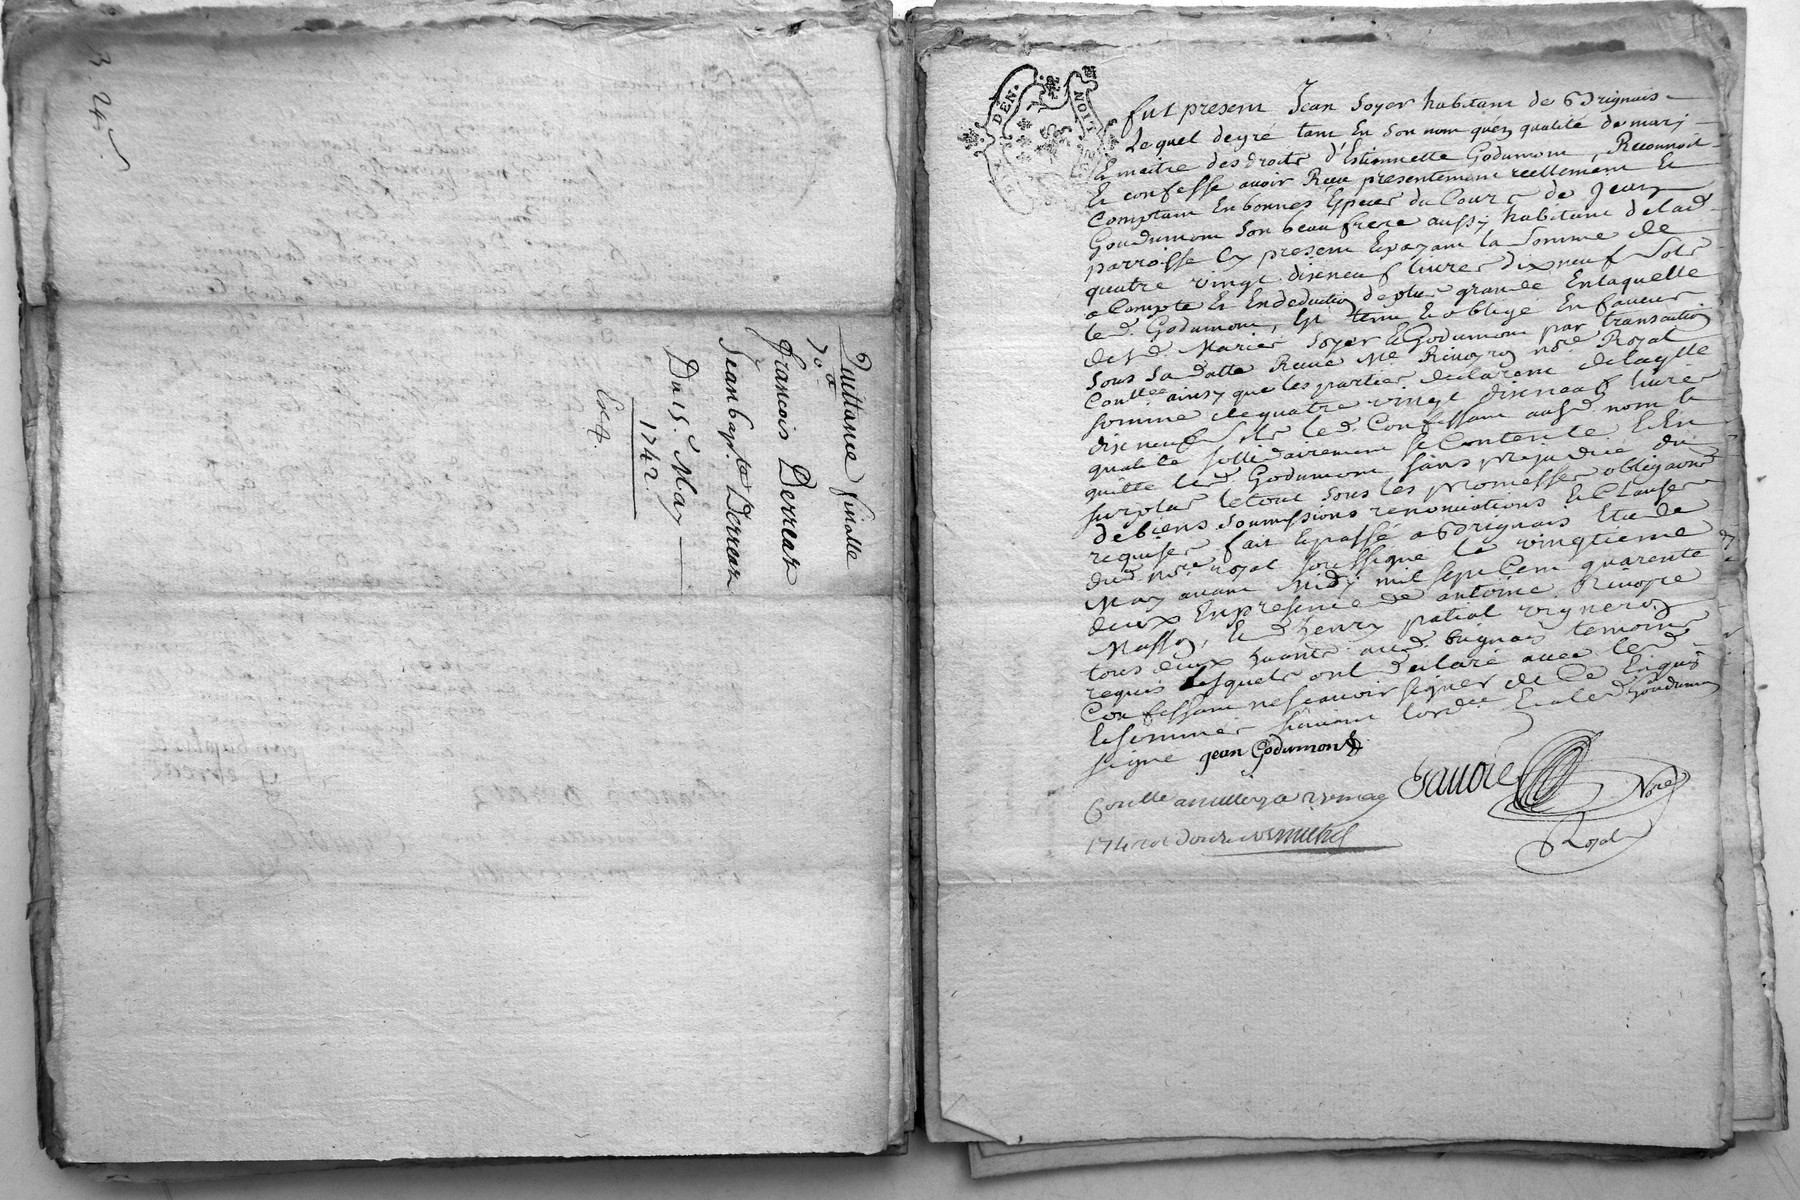 Quittance finalle
70ᵗᵗ
francois Derreaz
Jean bapᵗᵉ Derreaz
Du 15. May
1742.
Exᵗ.
DIX DEN.
LION
fut present Jean Soyer habitant de Brignais
Lequel de gré tant En Son nom qu'en qualité de mary
Et maitre des droits d'Estiennette Godumont, Reconnoit
Et confesse avoir Receu presentement reellement Et
Comptant En bonnes Especes du Cours de Jean
Goudumont Son beau frere aussy habitant de lad.
parroisse Cy present Et payant la Somme de
quatre vingt dixneuf livres dix neuf Sols
a Compte Et En deduction de plus grande En laquelle
led. Godumont, Est tenu Et obligé En faveur
desd. Mariez Soyer Et Godumont par transaction
Sous Sa datte Receue Me. noʳᵉ Royal
Conllée ainsy que les parties declarent de laqlle
somme de quatre vingt dixneuf livres
dixneuf Sols led. Confessant aud. nom Et
qualité sollidairement Se Contente Et En
quitte led. Godumont Sans prejudice du
surplus le tout Sous les promesses obligaōns
de biens Soumissions renonciations Et Clauses
requises fait Et passé a Brignais Etude
dud. noʳᵉ royal soussigné le vingtieme
May avant Midy mil Sept Cent quarente
deux En presence de antoine
Masson, Et d. henry patiat vigneron
tous deux aud. brignais temoins
requis Lesquels ont declaré avec led.
Confessant ne scavoir signer de Ce Enquis
Et sommés Suivant lordᶜᵉ Et a led Goudumon
signé jean Godumont
Savoie Noʳᵉ
Royal
Conllé 23 may
1742 michel